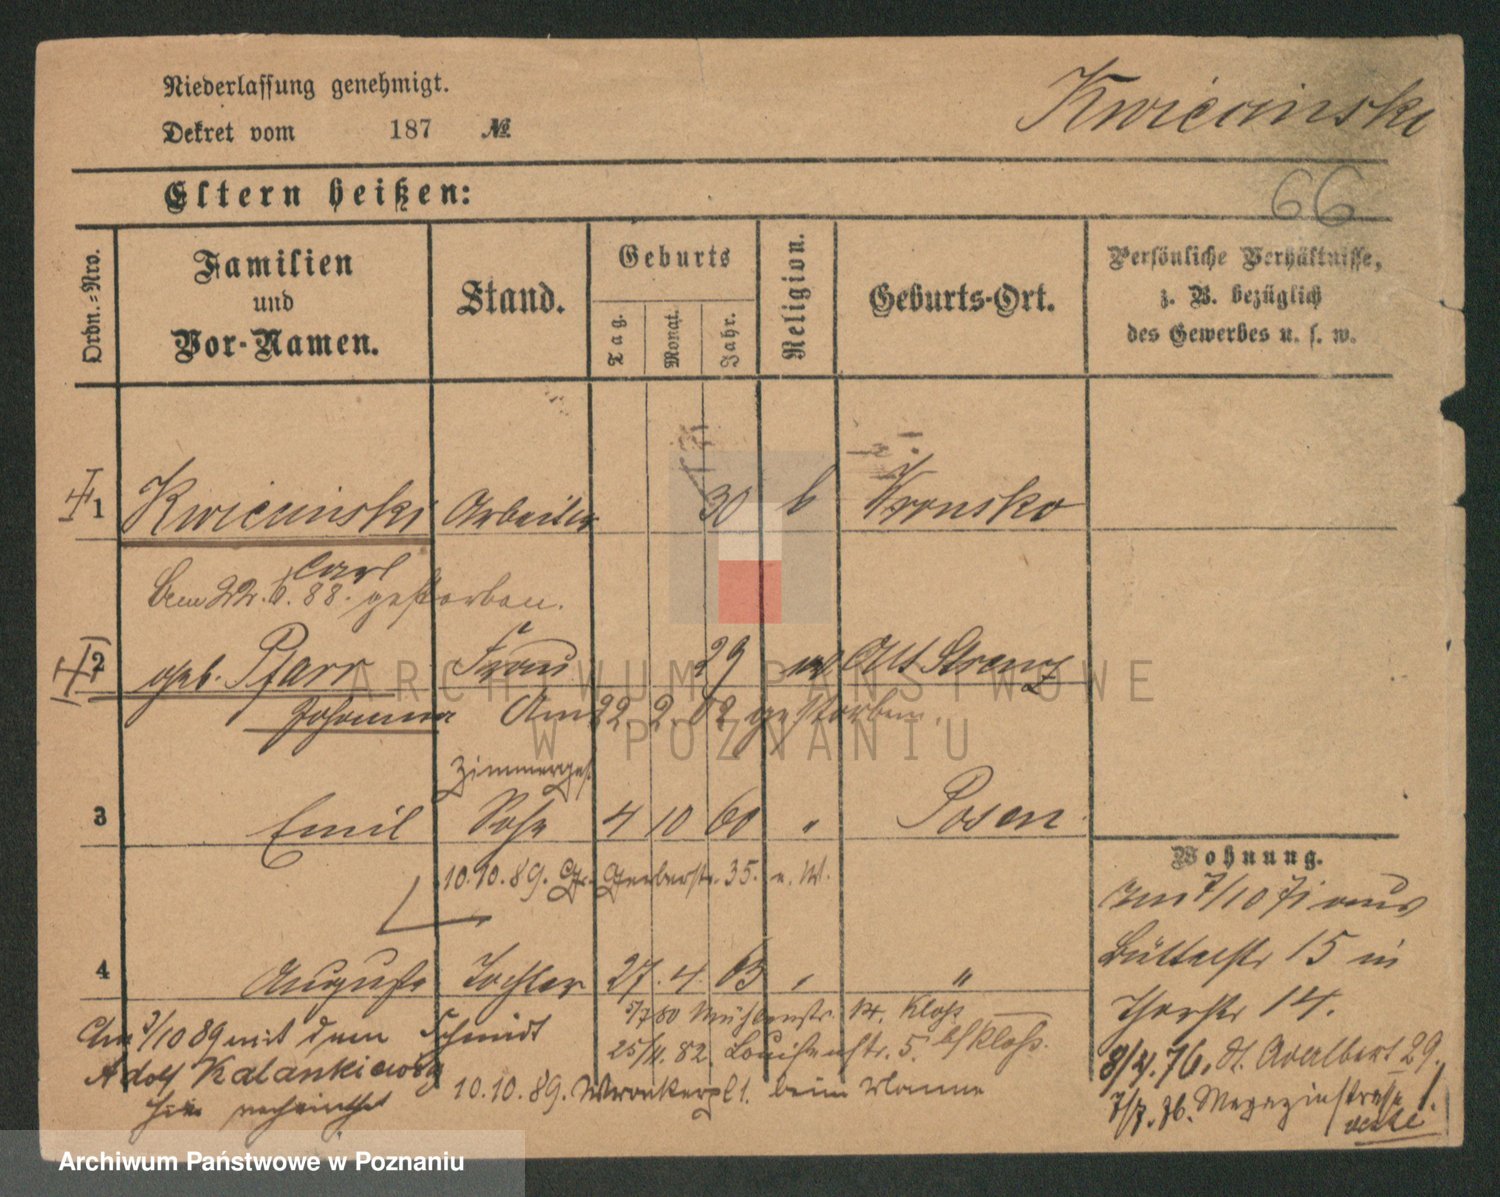 Niederlassung genehmigt.
Kwiecinski
Dekret vom 187 №
Eltern heißen:
66
Ordn.-Nro.
Familien
und
Vor-Namen.
Stand.
Geburts
Tag.
Monat.
Jahr.
Religion.
Geburts-Ort.
Persönliche Verhältnisse,
z. B. bezüglich
des Gewerbes u. s. w.
1 Kwiecinski Arbeiter 30 Wronsko
Carl
Am 22. 6. 88. gestorben.
2 geb. Pfarr Frau 29 Alt Strenz
Johanna Am 22 2. 82 gestorben.
Zimmerges.
3 Emil Sohn 4 10 60 " Posen
10.10.89. Gr. Gerberstr. 35. b. W.
4 Auguste Tochter 27. 4. 63 " "
5/7 80 Mühlenstr. Kloss
25/11. 82 Louisenstr. 5. b/ Kloss.
Am 3/10 89 mit dem Schmidt
Adolf Kalankiewicz
hier
10.10.89. Wronkerpl 1. beim Manne
Wohnung.
Am 7/10 71 aus
Büttelstr 15 in
Thorstr 14.
8/4. 76. St. Adalbert 29.
7/7. 76. Magazinstrasse 1.
ARCHIWUM PAŃSTWOWE
W POZNANIU
Archiwum Państwowe w Poznaniu